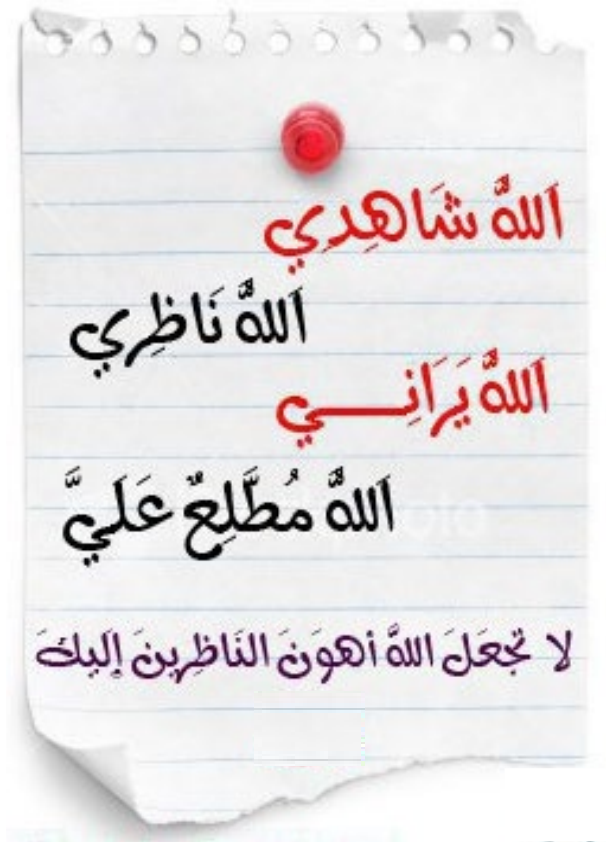 اَللهُ شَاهِدِي
اَللهُ نَاظِرِي
اَللهُ يَرَانِــــي
اَللهُ مُطَّلِعٌ عَلَيَّ
لا تَجْعَلَ اللهَ أهوَنَ النَاظِرِينَ إِلَيكَ